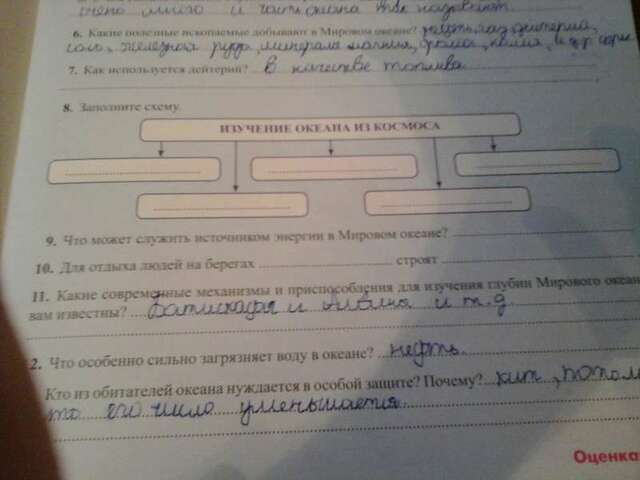 очено много и часть океана так называют.
6. Какие полезные ископаемые добывают в Мировом океане? нефть, газ,
соль, железная руда, минерала
7. Как используется дейтерий? в качестве топлива
8. Заполните схему.
ИЗУЧЕНИЕ ОКЕАНА ИЗ КОСМОСА
9. Что может служить источником энергии в Мировом океане?
10. Для отдыха людей на берегах строят
11. Какие современные механизмы и приспособления для изучения глубин Мирового океана
вам известны? Батискафы и и т.д.
2. Что особенно сильно загрязняет воду в океане? нефть.
Кто из обитателей океана нуждается в особой защите? Почему? кит, потом
то его число уменьшается.
Оценка